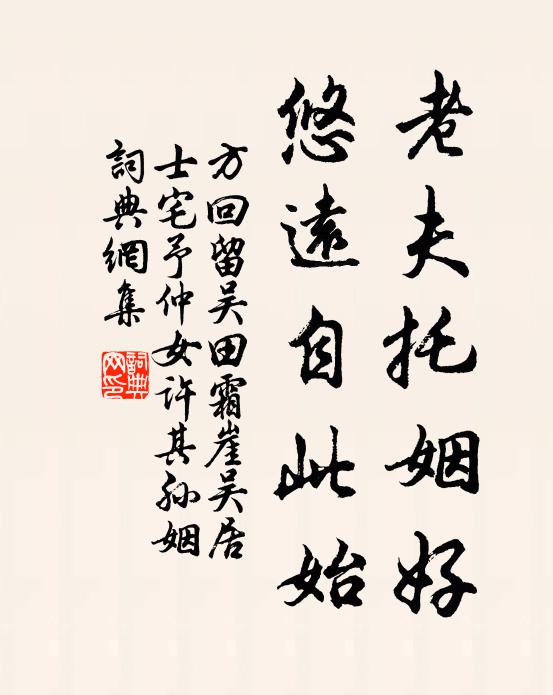 老夫托姻好
悠遠自此始
方回留吴田霜崖吴居
士宅予仲女许其孙姻
詞典網集
詞典
网印